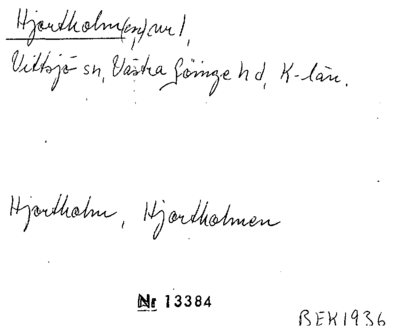 Hjortholm(en) nr 1,
Vittsjö sn, Västra Göinge hd, K-län.
Hjortholm, Hjortholmen
Nr 13384
BEK1936